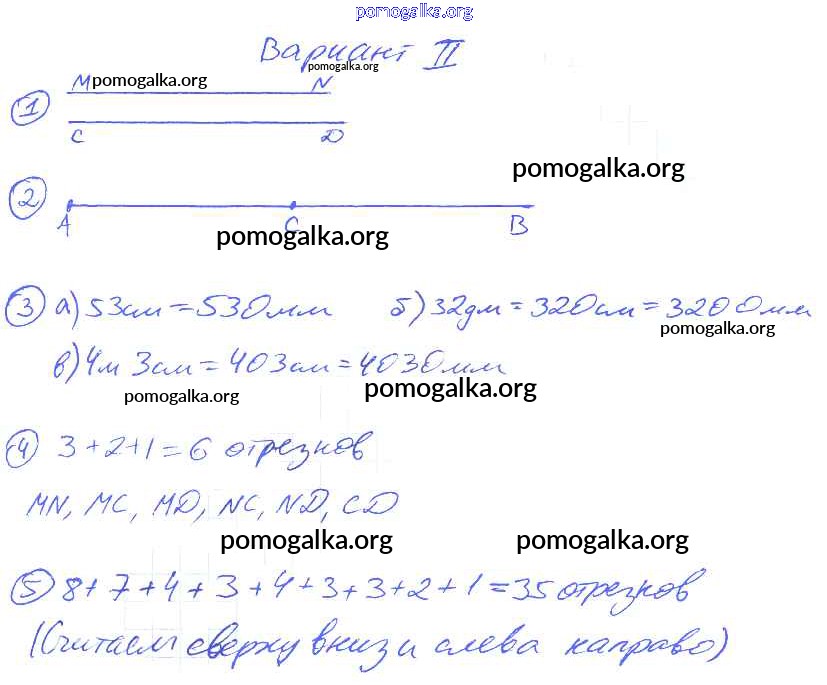 pomogalka.org
Вариант II
pomogalka.org
M pomogalka.org N
1
C D
pomogalka.org
2
A C B
pomogalka.org
3 а) 53см = 530мм б) 32дм = 320см = 3200мм
pomogalka.org
в) 4м 3см = 403см = 4030мм
pomogalka.org pomogalka.org
4 3+2+1=6 отрезков
MN, MC, MD, NC, ND, CD
pomogalka.org pomogalka.org
5 8+7+4+3+4+3+3+2+1=35 отрезков
(Считаем сверху вниз и слева направо)